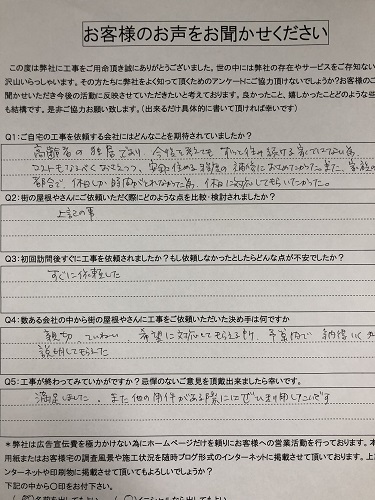 お客様のお声をお聞かせください
この度は弊社に工事をご用命頂き誠にありがとうございました。世の中には弊社の存在やサービスをご存知ない
沢山いらっしゃいます。その方たちに弊社をよく知って頂くためのアンケートにご協力頂けないでしょうか?お客様のご
聞かせいただき今後の活動に反映させていただきたいと考えております。良かったこと、嬉しかったことどのような些
も結構です。是非ご協力お願い致します。(出来るだけ具体的に書いて頂ければ幸いです)
Q1:ご自宅の工事を依頼する会社にはどんなことを期待されていましたか?
高齢者の独居であり、今後を考えても、ずっと住み続ける家ではない為、
コストもなるべくおさえつつ、安心して住める程度の補修におさめたかった。また、家族の
都合で、休日しか時間がとれなかった為、休日に対応してもらいたかった。
Q2:街の屋根やさんにご依頼いただく際にどのような点を比較・検討されましたか?
上記の事
Q3:初回訪問後すぐに工事を依頼されましたか?もし依頼しなかったとしたらどんな点が不安でしたか?
すぐに依頼した
Q4:数ある会社の中から街の屋根やさんに工事をご依頼いただいた決め手は何ですか
親切、ていねい、希望に対応してもらえる所、予算内で納得いく
説明してもらえた
Q5:工事が終わってみていかがですか?忌憚のないご意見を頂戴出来ましたら幸いです。
満足しました。また他の用件がある際にはぜひ利用したいです
*弊社は広告宣伝費を極力かけない為にホームページだけを頼りにお客様への営業活動を行っております。本
用紙またはお客様宅の調査風景や施工状況を随時ブログ形式のインターネットに掲載させて頂いております。上
ンターネットや印刷物に掲載させて頂いてもよろしいでしょうか?
下記の中から〇印をお付け下さい。